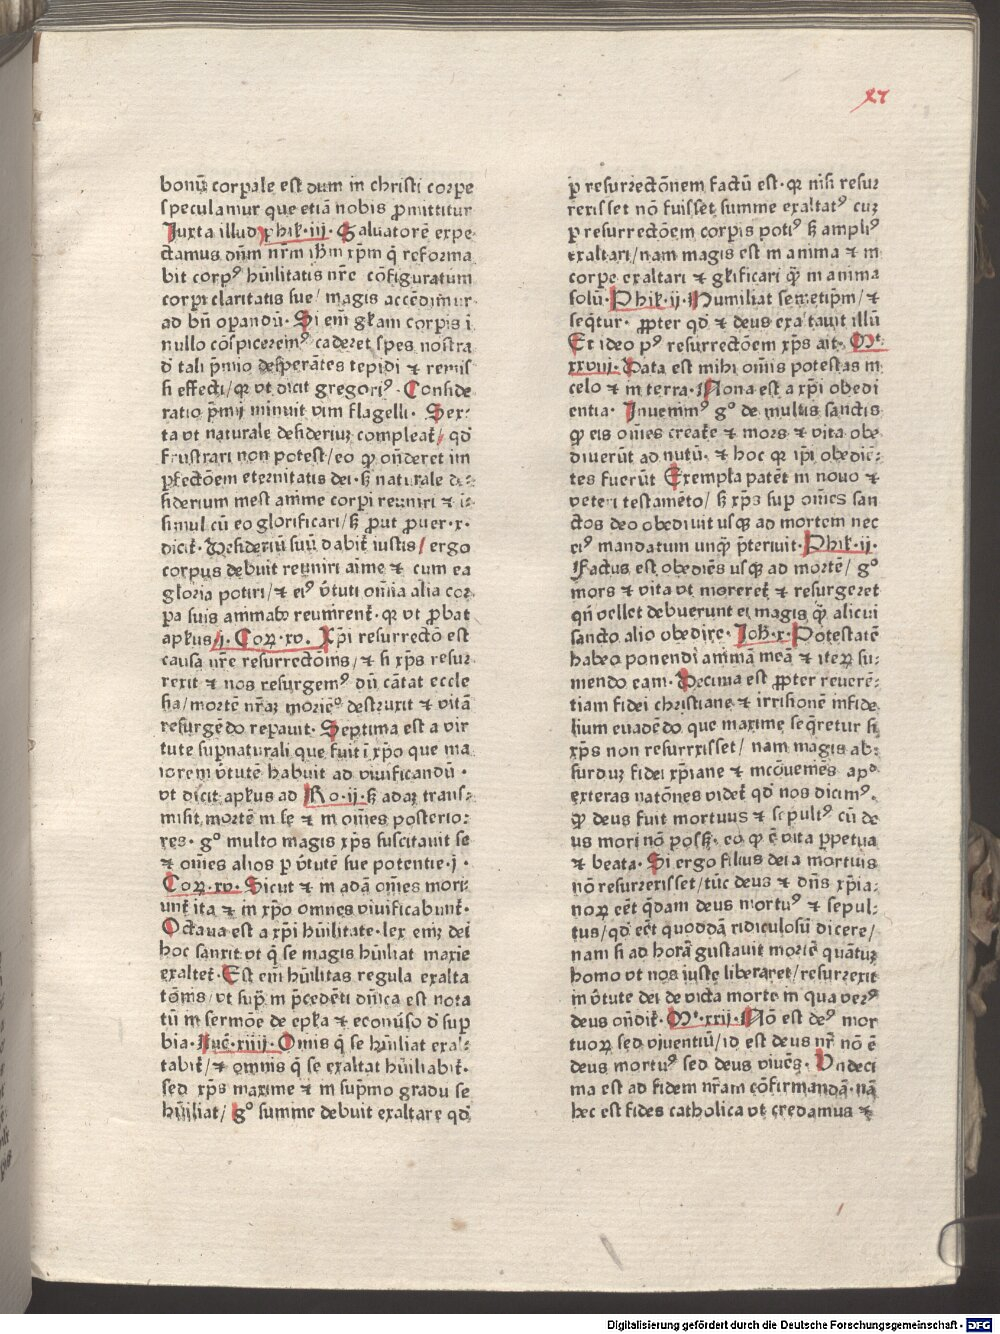 xv
bonū corpale est dum in christi corpe
speculamur que etiā nobis ꝓmittitur
Juxta illud phil̕·iij· Saluatorē expe
ctamus dn̄m nr̄m ih̄m xp̄m q̇ reforma
bit corpꝰ hūilitatis nr̄e cōfiguratum
corpi claritatis sue/ magis accēdimur
ad bn̄ opandū· Si em̄ gl̄iam corpis ī
nullo cōspiceremꝰ caderet spes nostra
d̓ tali p̄mio desperātes tepidi ⁊ remis
si effecti/qꝛ vt dicit gregoriꝰ· Conside
ratio p̄mij minuit vim flagelli· Sex-
ta vt naturale desideriuꝫ compleat᷑/ qd̓
frustrari non potest/eo ꝙ on̄deret im
ꝑfectōem eternitatis dei·sꝫ naturale de-
siderium inest anime corpi reuniri ⁊
simul cū eo glorificari/sꝫ ꝓut ꝓuer·x·
dicit᷑· Desideriū suū dabit᷑ iustis/ ergo
corpus debuit reuniri aīme ⁊ cum ea
gloria potiri/⁊ eiꝰ v̓tuti om̄ia alia cor
pa suis animabꝰ reunirent᷑· qꝛ vt ꝓbat
apl̓us/j· Corꝝ·xv· Xp̄i resurrectō est
causa nr̄e resurrectōnis/⁊ si xp̄s resur
rexit ⁊ nos resurgemꝰ dū cātat eccle
sia/mortē nr̄aꝫ moriēs destruxit ⁊ vitā
resurgēdo repauit· Septima est a vir
tute suꝑnaturali que fuit ī xp̄o que ma
iorem v̓tutē habuit ad viuificandū·
vt dicit apl̓us ad Ro·ij· sꝫ adaꝫ trans-
misit mortē in se ⁊ in om̄es posterio-
res· gͦ multo magis xp̄s suscitauit se
⁊ om̄es alios ꝑ v̓tutē sue potentie·j·
Corꝝ·xv· Sicut ⁊ in adā om̄es mori-
unt᷑ ita ⁊ in xp̄o omnes viuificabunt᷑·
Octaua est a xp̄i hūilitate·lex em̄ dei
hoc sanxit vt q̇ se magis hūiliat maxīe
exaltet᷑· Est em̄ hūilitas regula exalta
tōnis/vt supͣ in p̄cedēti dn̄ica est nota
tū in sermōe de epl̄a ⁊ ecōuerso d̓ suꝑ
bia·Luc̄·xiiij· Omīs q̇ se hūiliat exal-
tabit᷑/⁊ omnis q̇ se exaltat hūiliabit᷑·
sed xp̄s maxime ⁊ in sup̄mo gradu se
hūiliat/ gͦ summe debuit exaltare qd̓
ꝑ resurrectōnem factū est· qꝛ nisi resur
rexisset nō fuisset summe exaltatꝰ cuꝫ
ꝑ resurrectōem corpis potiꝰ sꝫ ampliꝰ
exaltari/nam magis est in anima ⁊ in
corpe exaltari ⁊ gl̓ificari qͣꝫ in anima
solū· Phil̕·ij· Humiliat semetip̄m/⁊
seq̇tur· ꝓpter qd̓ ⁊ deus exaltauit illū
Et ideo pꝰ resurrectōem xp̄s ait· Mt᷑·
xxviij· Data est mihi om̄is potestas in
celo ⁊ in terra· Nona est a xp̄i obedi
entia· Inuenimꝰ gͦ de multis sanctis
ꝙ eis om̄es creat᷑e ⁊ mors ⁊ vita obe
dituerūt ad nutū· ⁊ hoc qꝛ ip̄i obediē-
tes fuerūt Exempla patēt in nouo ⁊
veteri testamēto/ sꝫ xp̄s suꝑ om̄es san
ctos deo obediuit usqꝫ ad mortem nec
eiꝰ mandatum unqͣꝫ p̄teriuit· Phil̕·ij·
Factus est obediēs usqꝫ ad mortē/ gͦ
mors ⁊ vita vt moreret᷑ ⁊ resurgeret
qn̄ vellet debuerunt ei magis qͣꝫ alicui
sancto alio obedire· Joh̄·x· Potestatē
habeo ponendi animā meā ⁊ iteꝝ su-
mendo eam· Decima est ꝓpter reuerē-
tiam fidei christiane ⁊ irrisionē infide
lium euadēdo que maxime seq̇retur si
xp̄s non resurrxisset/ nam magis ab-
surduꝫ fidei xp̄iane ⁊ incōueniēs apd̓
exteras natōnes videt᷑ qd̓ nos dicimꝰ
ꝙ deus fuit mortuus ⁊ sepultꝰ cū de
us mori nō possꝫ· eo ꝙ ē vita ꝑpetua
⁊ beata· Si ergo filius dei a mortuis
nō resurrexisset/tūc deus ⁊ dn̄s xp̄ia-
noꝝ eēt q̇dam deus mortuꝰ ⁊ sepul-
tus/qd̓ eēt quoddā ridiculosū dicere/
nam si ad horā gustauit mortē quātuꝫ
homo vt nos iuste liberaret/resurrexit
in v̓tute dei de victa morte in qua verꝰ
deus on̄dit᷑· Mͭ·xxij· Nō est deꝰ mor
tuoꝝ sed viuentiū/id est deus nr̄ nō ē
deus mortuꝰ sed deus viuēs· Undeci
ma est ad fidem nr̄am cōfirmandā·nā
hec est fides catholica vt credamus ⁊
Digitalisierung gefördert durch die Deutsche Forschungsgemeinschaft - DFG